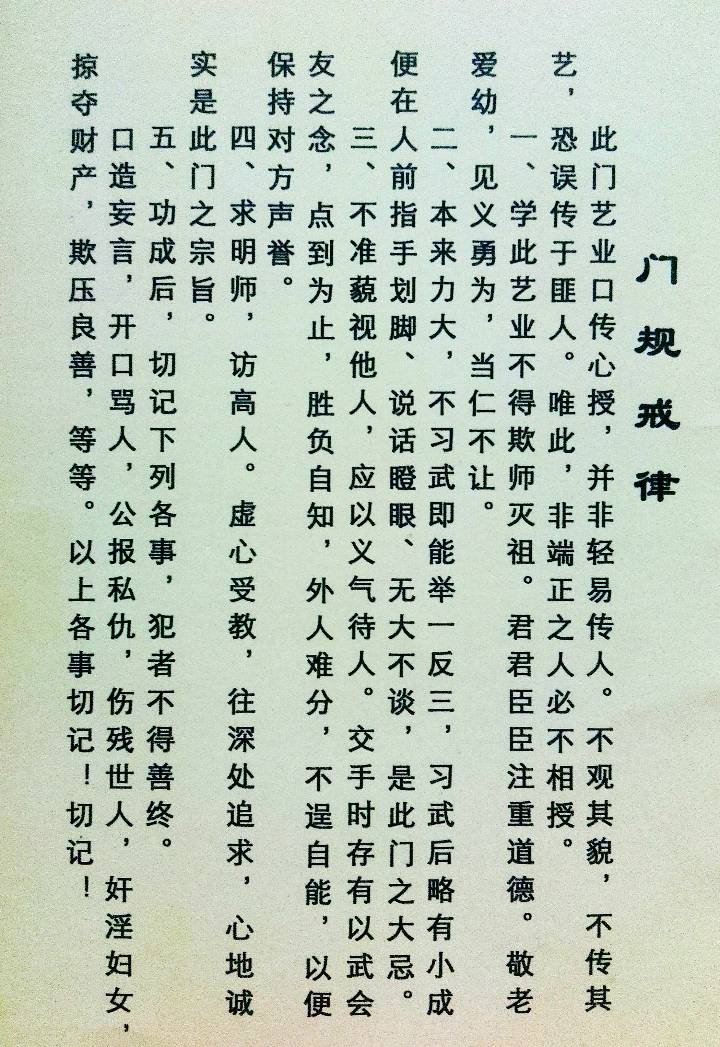 门规戒律
此门艺业口传心授，并非轻易传人。不观其貌，不传其
艺，恐误传于匪人。唯此，非端正之人必不相授。
一、学此艺业不得欺师灭祖。君君臣臣注重道德。敬老
爱幼，见义勇为，当仁不让。
二、本来力大，不习武即能举一反三，习武后略有小成
便在人前指手划脚、说话瞪眼、无大不谈，是此门之大忌。
三、不准藐视他人，应以义气待人。交手时存有以武会
友之念，点到为止，胜负自知，外人难分，不逞自能，以便
保持对方声誉。
四、求明师，访高人。虚心受教，往深处追求，心地诚
实是此门之宗旨。
五、功成后，切记下列各事，犯者不得善终。
口造妄言，开口骂人，公报私仇，伤残世人，奸淫妇女，
掠夺财产，欺压良善，等等。以上各事切记！切记！